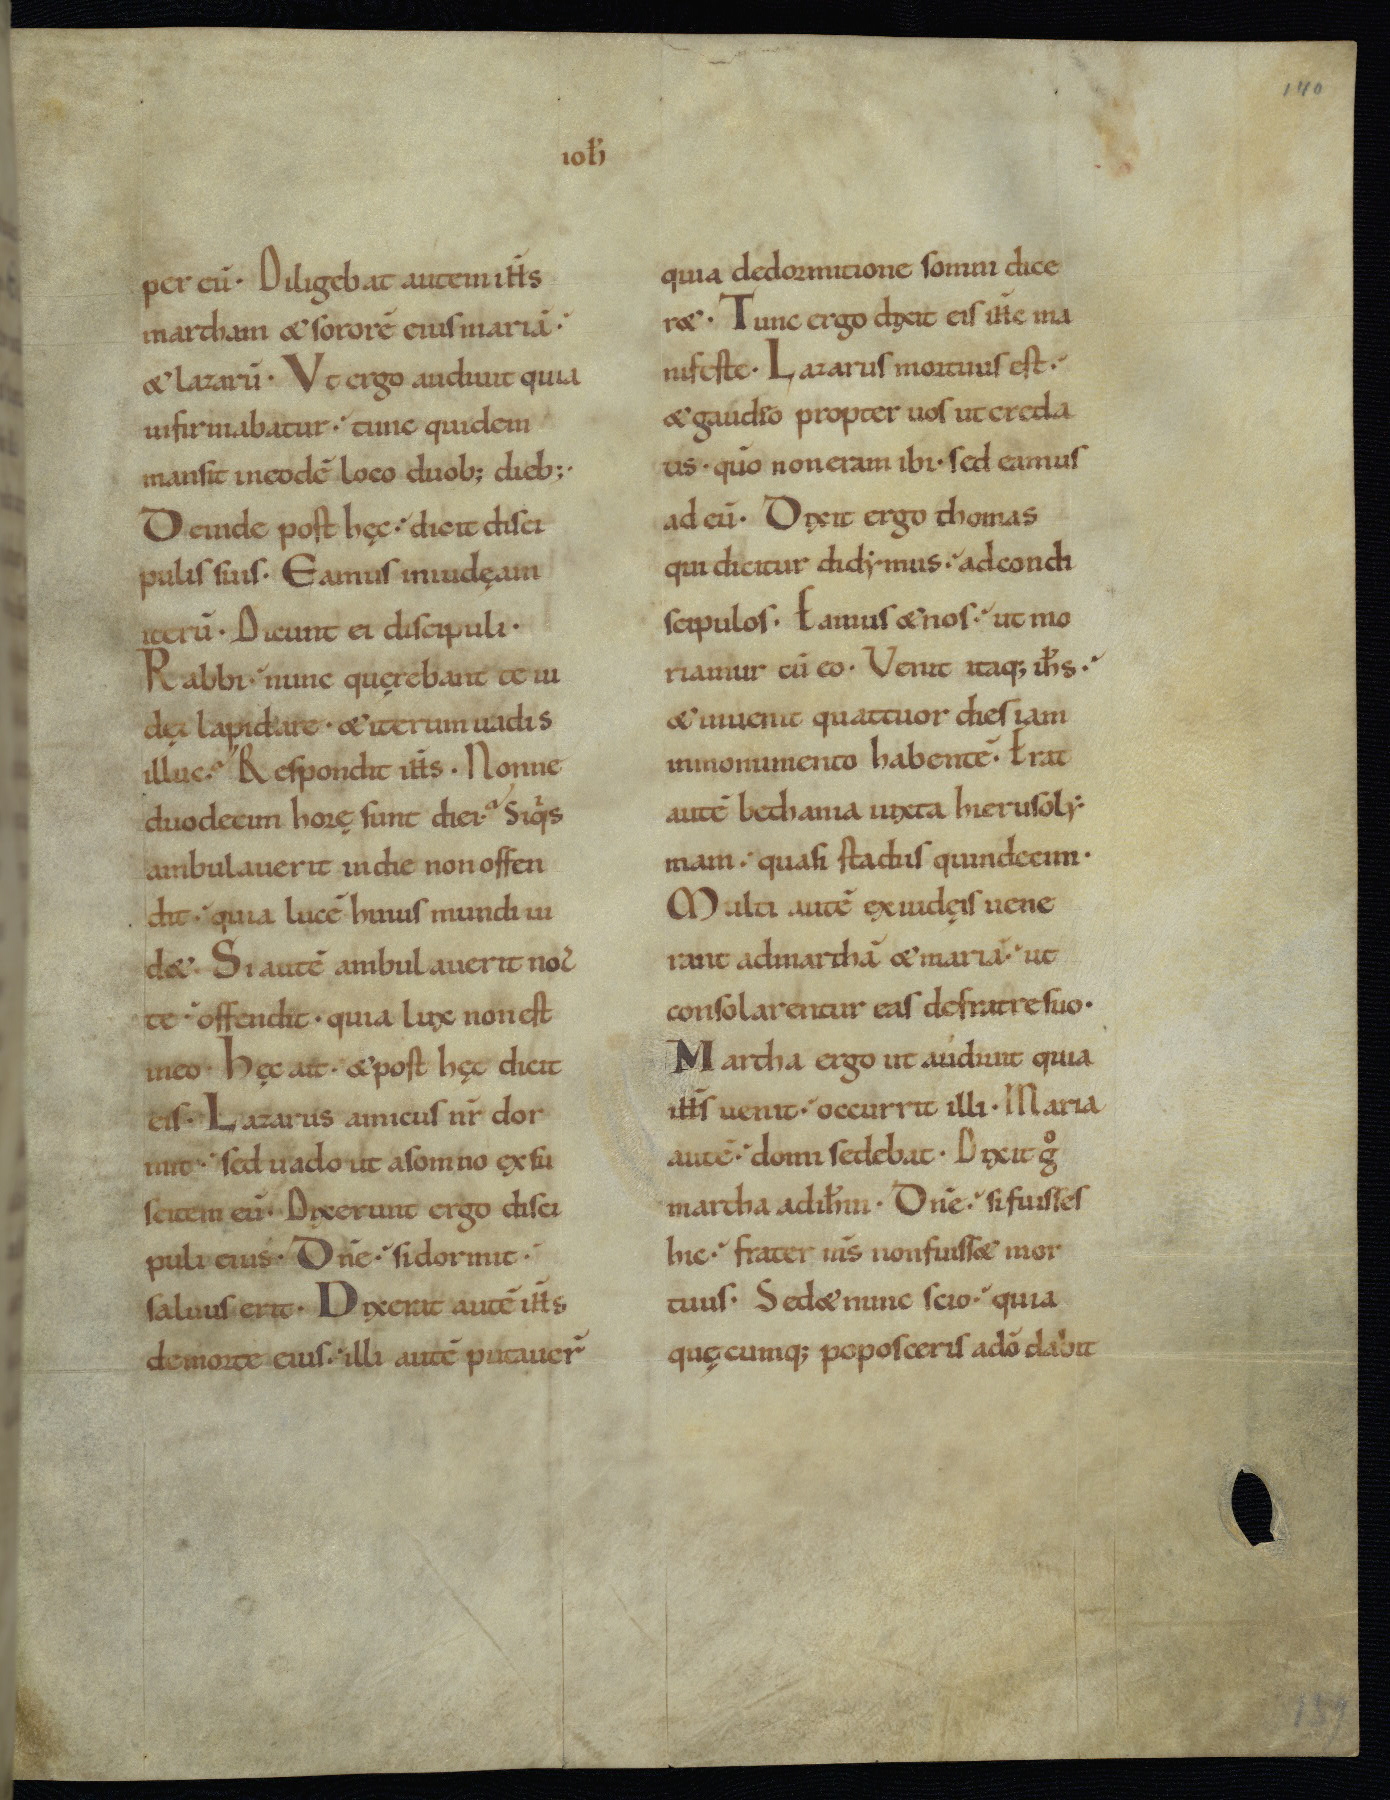 140
ioħ
per eū· Diligebat autem iħs
martham & sororē eius mariā·
& lazarū· Vt ergo audiuit quia
infirmabatur· tunc quidem
mansit in eodē loco duob; dieb;·
Deinde post hęc· dicit disci
pulis suis· Eamus in iudęam
iterū· Dicunt ei discipuli·
Rabbi· nunc quęrebant te iu
dęi lapidare· & iterum uadis
illuc· Respondit iħs· Nonne
duodecim horę sunt diei· Siqis
ambulauerit in die non offen
dit· quia lucē huius mundi ui
d&· Si autē ambulauerit noc
te· offendit· quia lux non est
in eo· hęc ait· & post hęc dicit
eis· Lazarus amicus nr̄ dor
mit· sed uado ut a somno exsu
scitem eū· Dixerunt ergo disci
puli eius· Dn̄e· si dormit·
saluus erit· Dixerat autē iħs
de morte eius· illi autē putauer̄
quia de dormitione somni dice
r&· Tunc ergo dixit eis iħc ma
nifeste· Lazarus mortuus est·
& gaudeo propter uos ut creda
tis· quō non eram ibi· sed eamus
ad eū· Dixit ergo thomas
qui dicitur didẏmus· ad condi
scipulos· Eamus & nos· ut mo
riamur cū eo· Venit itaq; iħs·
& inuenit quattuor dies iam
in monumento habentē· Erat
autē bethania iuxta hierusolẏ
mam· quasi stadiis quindecim·
Multi autē ex iudęis uene
rant ad marthā & mariā· ut
consolarentur eas de fratre suo·
Martha ergo ut audiuit quia
iħs uenit· occurrit illi· Maria
autē· domi sedebat· Dixit g̊
martha ad iħm· Dn̄e· si fuisses
hic· frater m̄s non fuiss& mor
tuus· Sed & nunc scio· quia
quęcumq; poposceris a dō dabit
139